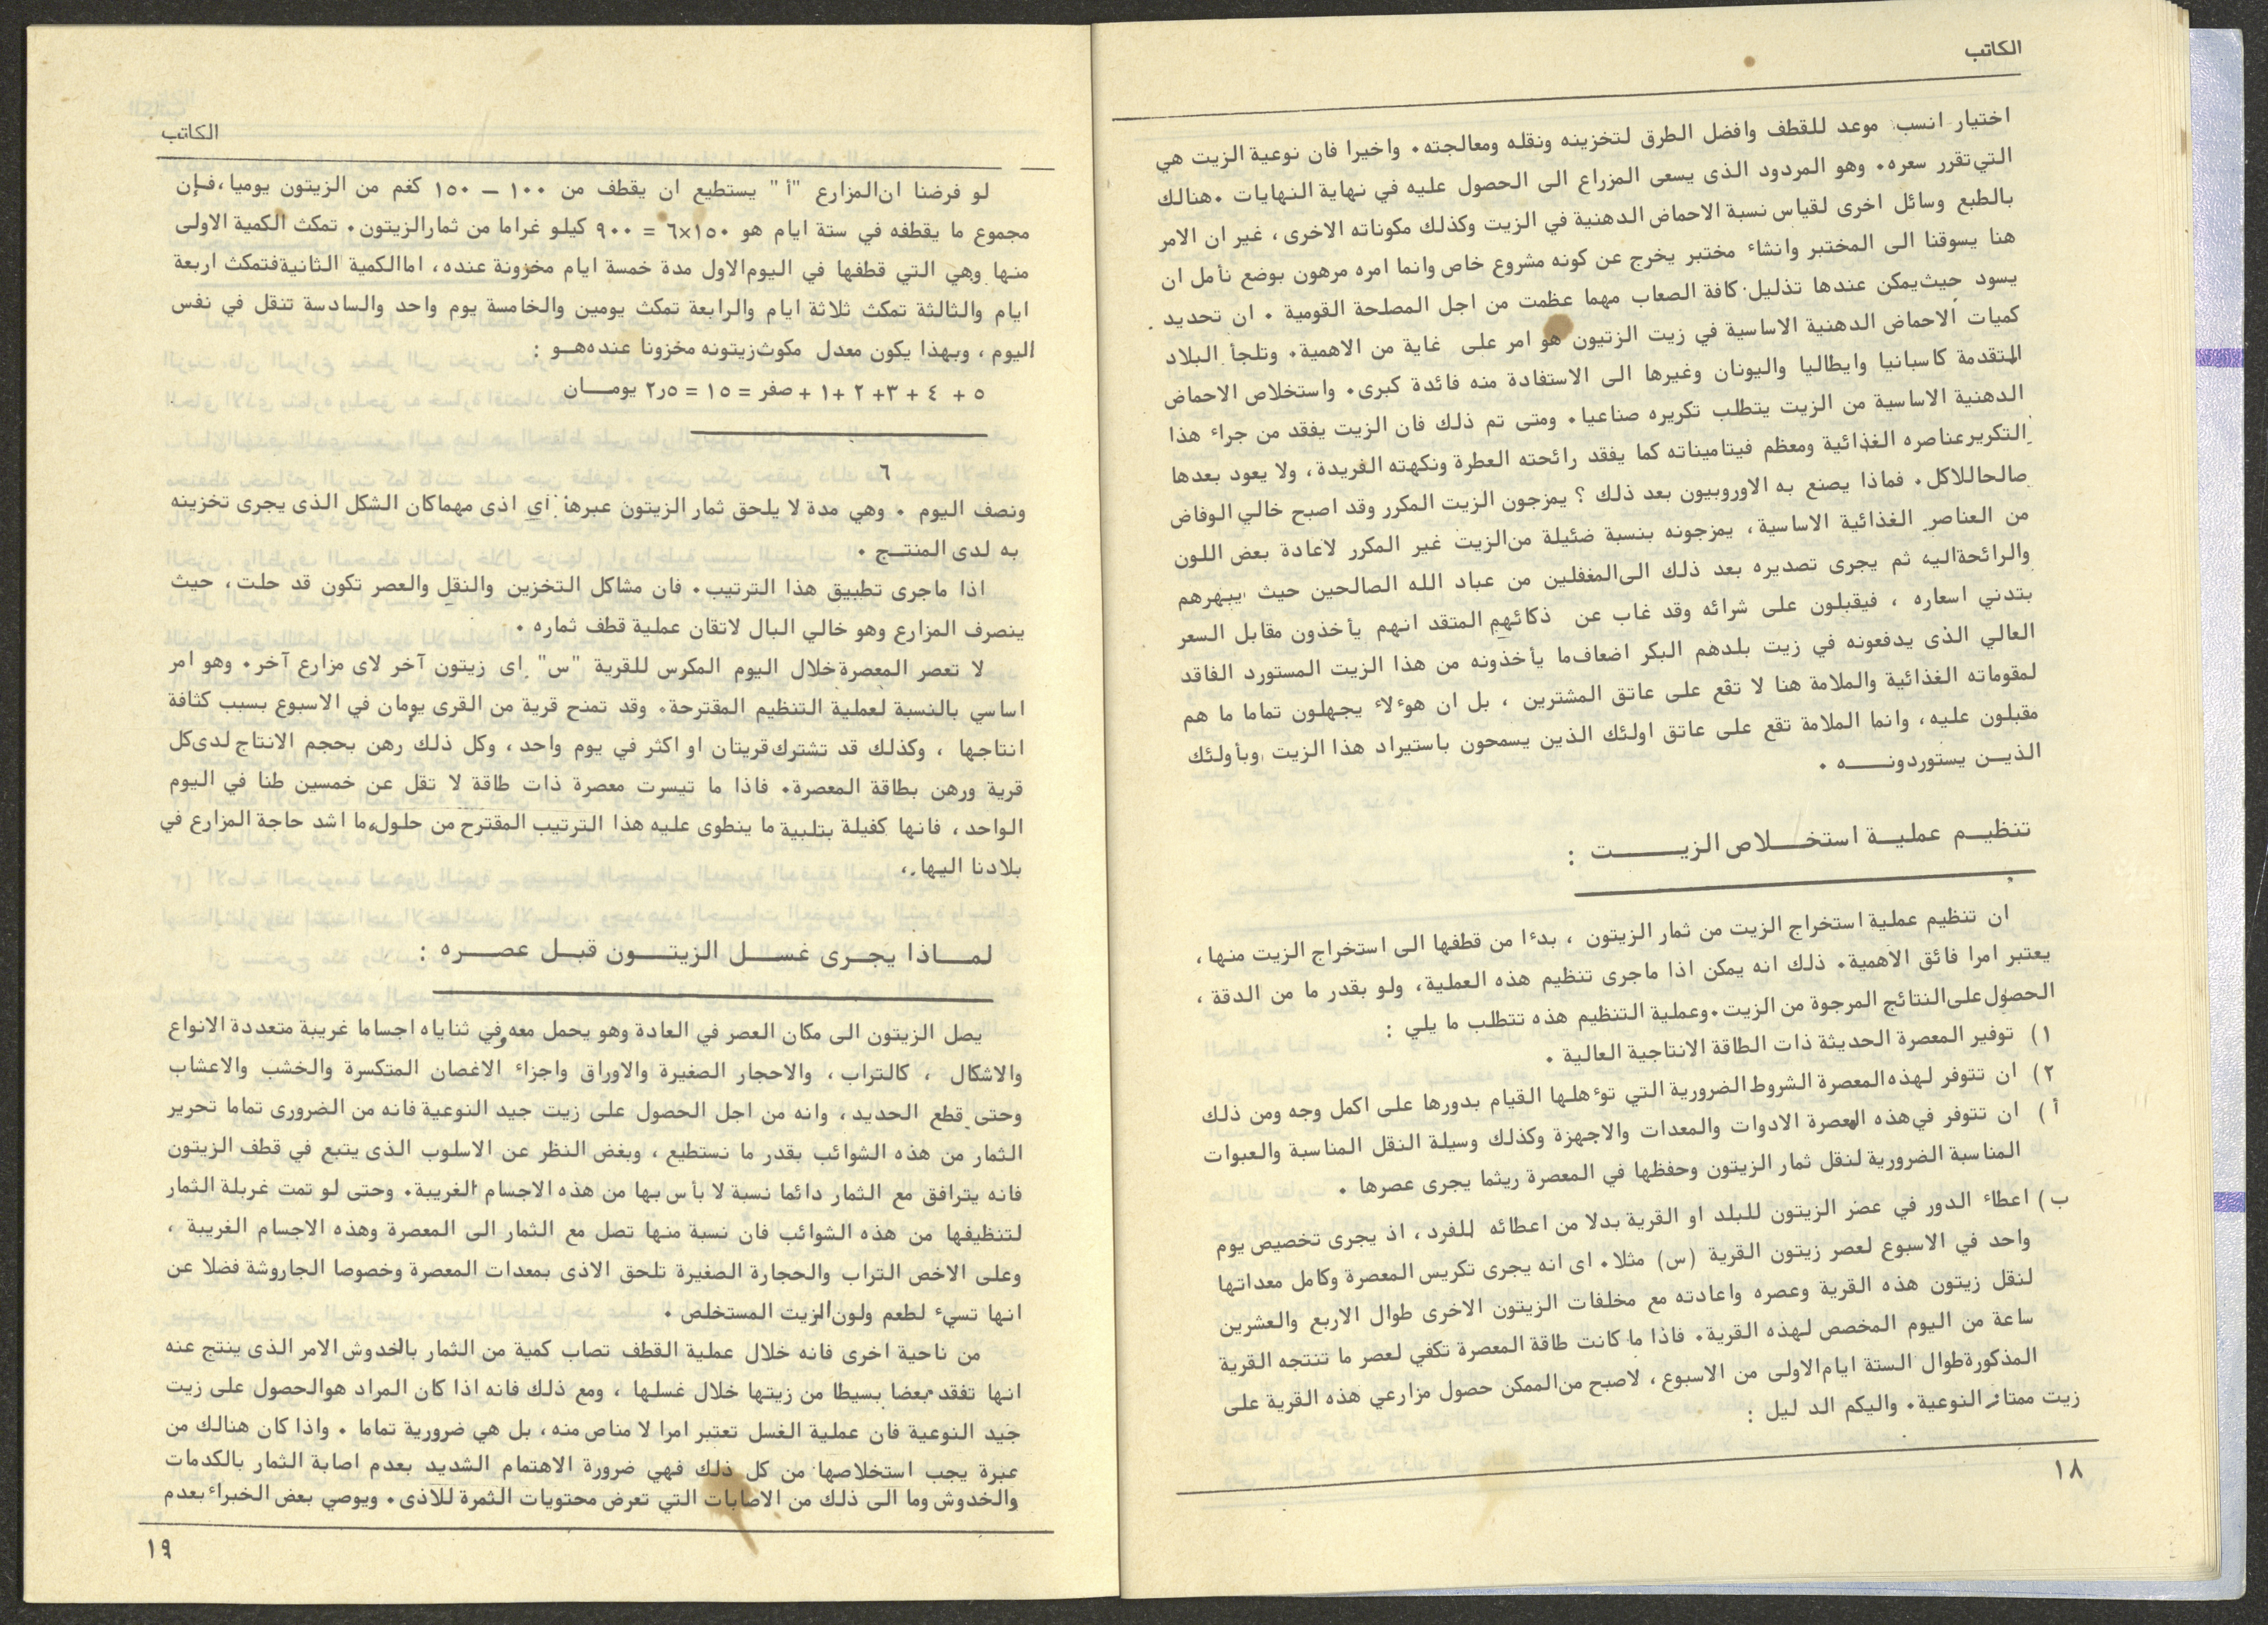 الكاتب
اختيار انسب موعد للقطف وافضل الطرق لتخزينه ونقله ومعالجته٠ واخيرا فان نوعية الزيت هي
التي تقرر سعره٠ وهو المردود الذى يسعى المزراع الى الحصول عليه في نهاية النهايات ٠هنالك
بالطبع وسائل اخرى لقياس نسبة الاحماض الدهنية في الزيت وكذلك مكوناته الاخرى، غير ان الامر
هنا يسوقنا الى المختبر وانشاء مختبر يخرج عن كونه مشروع خاص وانما امره مرهون بوضع نأمل ان
يسود حيث يمكن عندها تذليل كافة الصعاب مهما عظمت من اجل المصلحة القومية ٠ ان تحديد
كميات الاحماض الدهنية الاساسية في زيت الزتيون هو امر على غاية من الاهمية٠ وتلجأ البلاد
المتقدمة كاسبانيا وايطاليا واليونان وغيرها الى الاستفادة منه فائدة كبرى٠ واستخلاص الاحماض
الدهنية الاساسية من الزيت يتطلب تكريره صناعيا٠ ومتى تم ذلك فان الزيت يفقد من جراء هذا
التكرير عناصره الغذائية ومعظم فيتاميناته كما يفقد رائحته العطرة ونكهته الفريدة، ولا يعود بعدها
صالحا للاكل٠ فماذا يصنع به الاوروبيون بعد ذلك ؟ يمزجون الزيت المكرر وقد اصبح خالي الوفاض
من العناصر الغذائية الاساسية، يمزجونه بنسبة ضئيلة من الزيت غير المكرر لاعادة بعض اللون
والرائحة اليه ثم يجرى تصديره بعد ذلك الى المغفلين من عباد الله الصالحين حيث يبهرهم
بتدني اسعاره ، فيقبلون على شرائه وقد غاب عن ذكائهم المتقد انهم يأخذون مقابل السعر
العالي الذى يدفعونه في زيت بلدهم البكر اضعاف ما يأخذونه من هذا الزيت المستورد الفاقد
لمقوماته الغذائية والملامة هنا لا تقع على عاتق المشترين ، بل ان هوءلاء يجهلون تماما ما هم
مقبلون عليه، وانما الملامة تقع على عاتق اولئك الذين يسمحون باستيراد هذا الزيت وبأولئك
الذيـن يستوردونــــه ٠
تنظيــم عمليــة استخـــلاص الزيـــــت :
ان تنظيم عملية استخراج الزيت من ثمار الزيتون ، بدءا من قطفها الى استخراج الزيت منها،
يعتبر امرا فائق الاهمية٠ ذلك انه يمكن اذا ماجرى تنظيم هذه العملية، ولو بقدر ما من الدقة ،
الحصول على النتائج المرجوة من الزيت٠وعملية التنظيم هذه تتطلب ما يلي :
١) توفير المعصرة الحديثة ذات الطاقة الانتاجية العالية ٠
٢) ان تتوفر لهذه المعصرة الشروط الضرورية التي توءهلها القيام بدورها على اكمل وجه ومن ذلك
أ ) ان تتوفر في هذه المعصرة الادوات والمعدات والاجهزة وكذلك وسيلة النقل المناسبة والعبوات
المناسبة الضرورية لنقل ثمار الزيتون وحفظها في المعصرة ريثما يجرى عصرها ٠
ب) اعطاء الدور في عصر الزيتون للبلد او القرية بدلا من اعطائه للفرد، اذ يجرى تخصيص يوم
واحد في الاسبوع لعصر زيتون القرية (س) مثلا٠ اى انه يجرى تكريس المعصرة وكامل معداتها
لنقل زيتون هذه القرية وعصره واعادته مع مخلفات الزيتون الاخرى طوال الاربع والعشرين
ساعة من اليوم المخصص لهذه القرية٠ فاذا ما كانت طاقة المعصرة تكفي لعصر ما تنتجه القرية
المذكورة طوال الستة ايام الاولى من الاسبوع، لاصبح من الممكن حصول مزارعي هذه القرية على
زيت ممتاز النوعية٠ واليكم الد ليل :
١٨
الكاتب
لو فرضنا ان المزارع "أ " يستطيع ان يقطف من ١٠٠ – ١٥٠ كغم من الزيتون يوميا، فـإن
مجموع ما يقطفه في ستة ايام هو ١٥٠×٦ = ٩٠٠ كيلو غراما من ثمار الزيتون٠ تمكث الكمية الاولى
منها وهي التي قطفها في اليوم الاول مدة خمسة ايام مخزونة عنده، اما الكمية الثانية فتمكث اربعة
ايام والثالثة تمكث ثلاثة ايام والرابعة تمكث يومين والخامسة يوم واحد والسادسة تنقل في نفس
اليوم ، وبهذا يكون معدل مكوث زيتونه مخزونا عنده هــو :
٥ + ٤ + ٣+ ٢ +١ + صفر = ١٥ = ٥ر٢ يومـــان
٦
ونصف اليوم ٠ وهي مدة لا يلحق ثمار الزيتون عبرها اي اذى مهما كان الشكل الذى يجرى تخزينه
به لدى المنتــج ٠
اذا ماجرى تطبيق هذا الترتيب٠ فان مشاكل التخزين والنقل والعصر تكون قد حلت، حيث
ينصرف المزارع وهو خالي البال لاتقان عملية قطف ثماره ٠
لا تعصر المعصرة خلال اليوم المكرس للقرية "س" اى زيتون آخر لاى مزارع آخر٠ وهو امر
اساسي بالنسبة لعملية التنظيم المقترحة٠ وقد تمنح قرية من القرى يومان في الاسبوع بسبب كثافة
انتاجها ، وكذلك قد تشترك قريتان او اكثر في يوم واحد، وكل ذلك رهن بحجم الانتاج لدى كل
قرية ورهن بطاقة المعصرة٠ فاذا ما تيسرت معصرة ذات طاقة لا تقل عن خمسين طنا في اليوم
الواحد، فانها كفيلة بتلبية ما ينطوى عليه هذا الترتيب المقترح من حلول، ما اشد حاجة المزارع في
بلادنا اليها،
لمــــاذا يجــرى غســـل الزيتــــون قبــل عصــــره :
يصل الزيتون الى مكان العصر في العادة وهو يحمل معه وفي ثناياه اجساما غريبة متعددة الانواع
والاشكال ، كالتراب، والاحجار الصغيرة والاوراق واجزاء الاغصان المتكسرة والخشب والاعشاب
وحتى قطع الحديد، وانه من اجل الحصول على زيت جيد النوعية فانه من الضرورى تماما تحرير
الثمار من هذه الشوائب بقدر ما نستطيع ، وبغض النظر عن الاسلوب الذى يتبع في قطف الزيتون
فانه يترافق مع الثمار دائما نسبة لا بأس بها من هذه الاجسام الغريبة٠ وحتى لو تمت غربلة الثمار
لتنظيفها من هذه الشوائب فان نسبة منها تصل مع الثمار الى المعصرة وهذه الاجسام الغريبة ،
وعلى الاخص التراب والحجارة الصغيرة تلحق الاذى بمعدات المعصرة وخصوصا الجاروشة فضلا عن
انها تسيء لطعم ولون الزيت المستخلص ٠
من ناحية اخرى فانه خلال عملية القطف تصاب كمية من الثمار بالخدوش الامر الذى ينتج عنه
انها تفقد بعضا بسيطا من زيتها خلال غسلها ، ومع ذلك فانه اذا كان المراد هو الحصول على زيت
جيد النوعية فان عملية الغسل تعتبر امرا لا مناص منه، بل هي ضرورية تماما ٠ واذا كان هنالك من
عبرة يجب استخلاصها من كل ذلك فهي ضرورة الاهتمام الشديد بعدم اصابة الثمار بالكدمات
والخدوش وما الى ذلك من الاصابات التي تعرض محتويات الثمرة للاذى٠ ويوصي بعض الخبراء بعدم
١٩